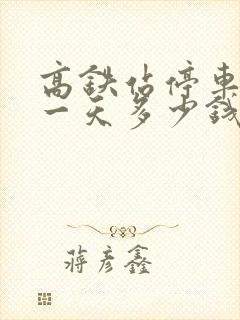 高铁站停车
一天多少钱
蒋彦鑫